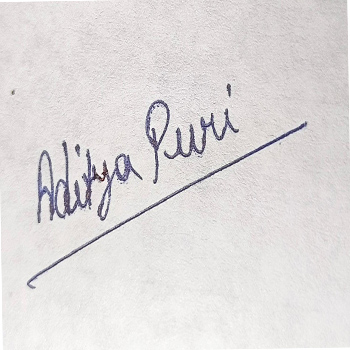 Aditya Puri